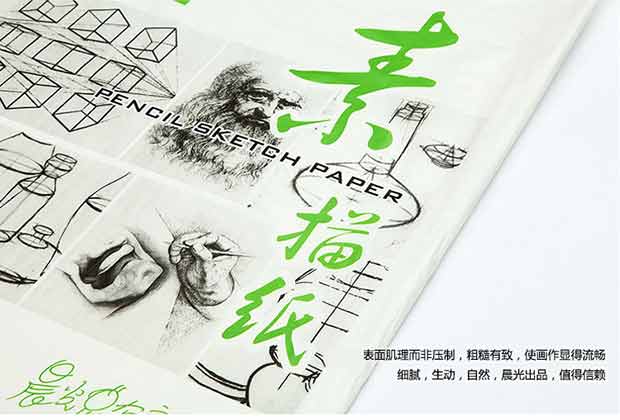 素描纸
PENCIL SKETCH PAPER
表面肌理而非压制，粗糙有致，使画作显得流畅
细腻，生动，自然，晨光出品，值得信赖